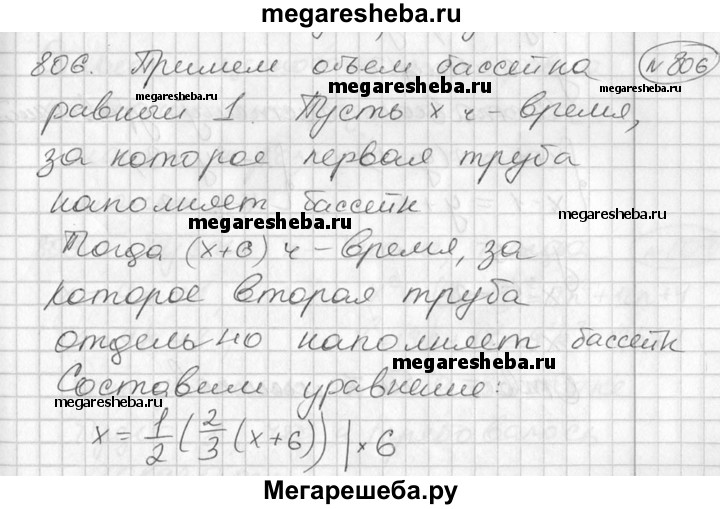 megaresheba.ru
806. Примем объем бассейна №806
megaresheba.ru megaresheba.ru
равный 1. Пусть x ч - время,
за которое первая труба
наполняет бассейн
megaresheba.ru megaresheba.ru
Тогда (x+6) ч - время, за
которое вторая труба
отдельно наполняет бассейн
megaresheba.ru
Составим уравнение:
megaresheba.ru
x = 1/2 (2/3 (x+6)) | × 6
Мегарешеба.ру